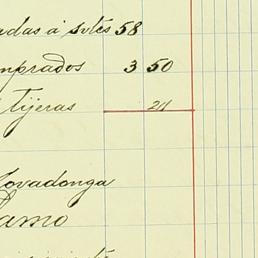 adas á svtés 58
mprados 3 50
tijeras 24
Covadonga
amo